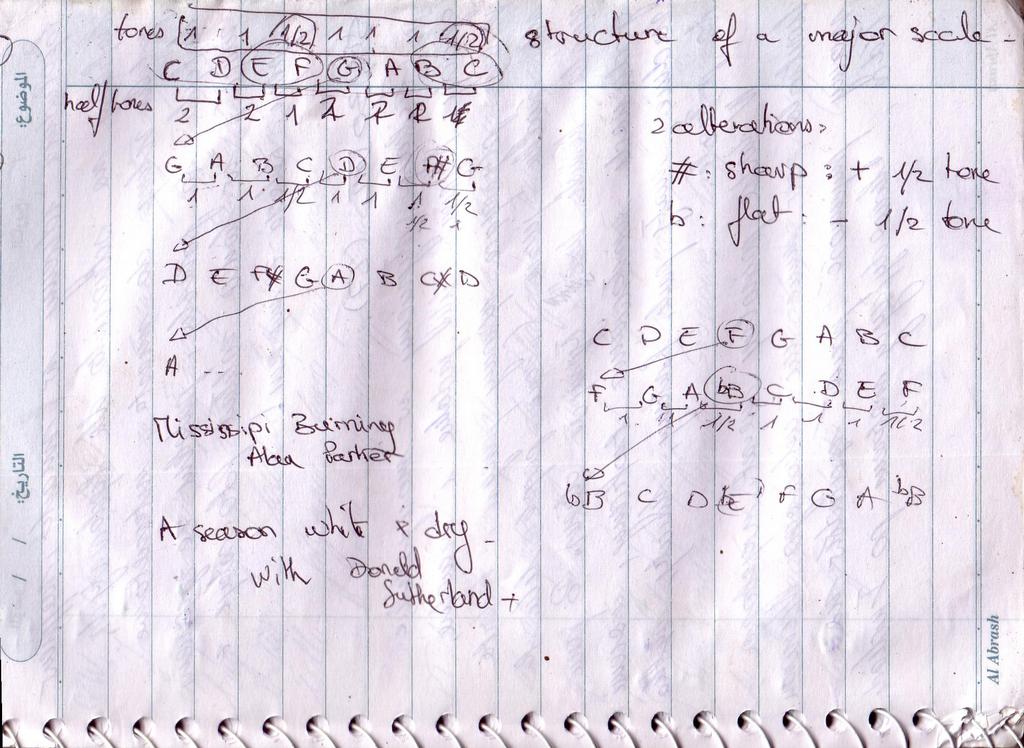 tones 1 1 1/2 1 1 1 1/2
structure of a major scale -
C D E F G A B C
half/tones 2 2 1 2 2 2 1
2 alterations:
#: sharp: + 1/2 tone
b: flat: - 1/2 tone
G A B C D E F# G
1 1 1/2 1 1 1 1/2
1/2 1
D E F# G A B C# D
A ...
C D E F G A B C
F G A bB C D E F
1 1 1/2 1 1 1 1/2
bB C D bE F G A bB
Mississipi Burning
Alan Parker
A season white & dry -
with Donald
Sutherland +
الموضوع:
التاريخ: / /
Al Abrash